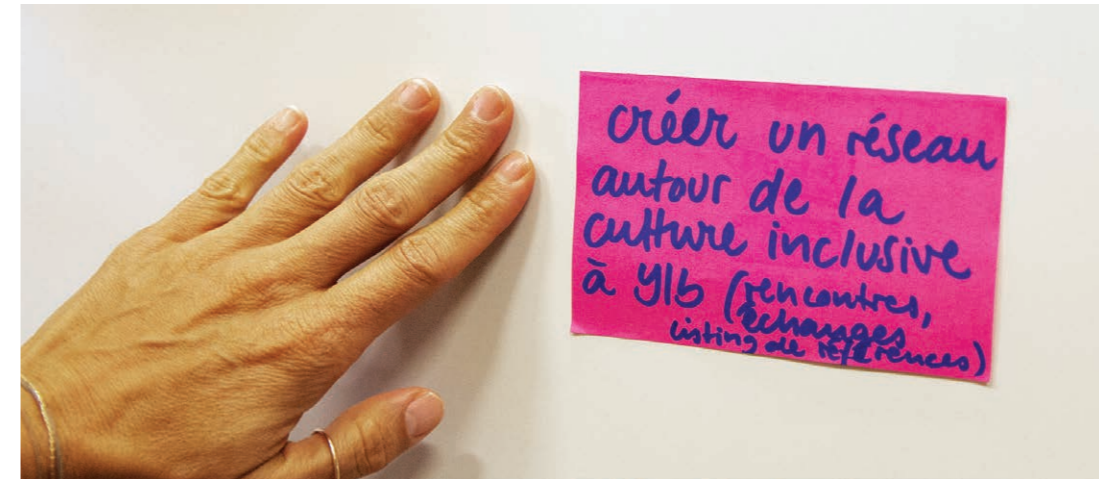 créer un réseau
autour de la
culture inclusive
à Ylb (rencontres,
échanges
listing de références)